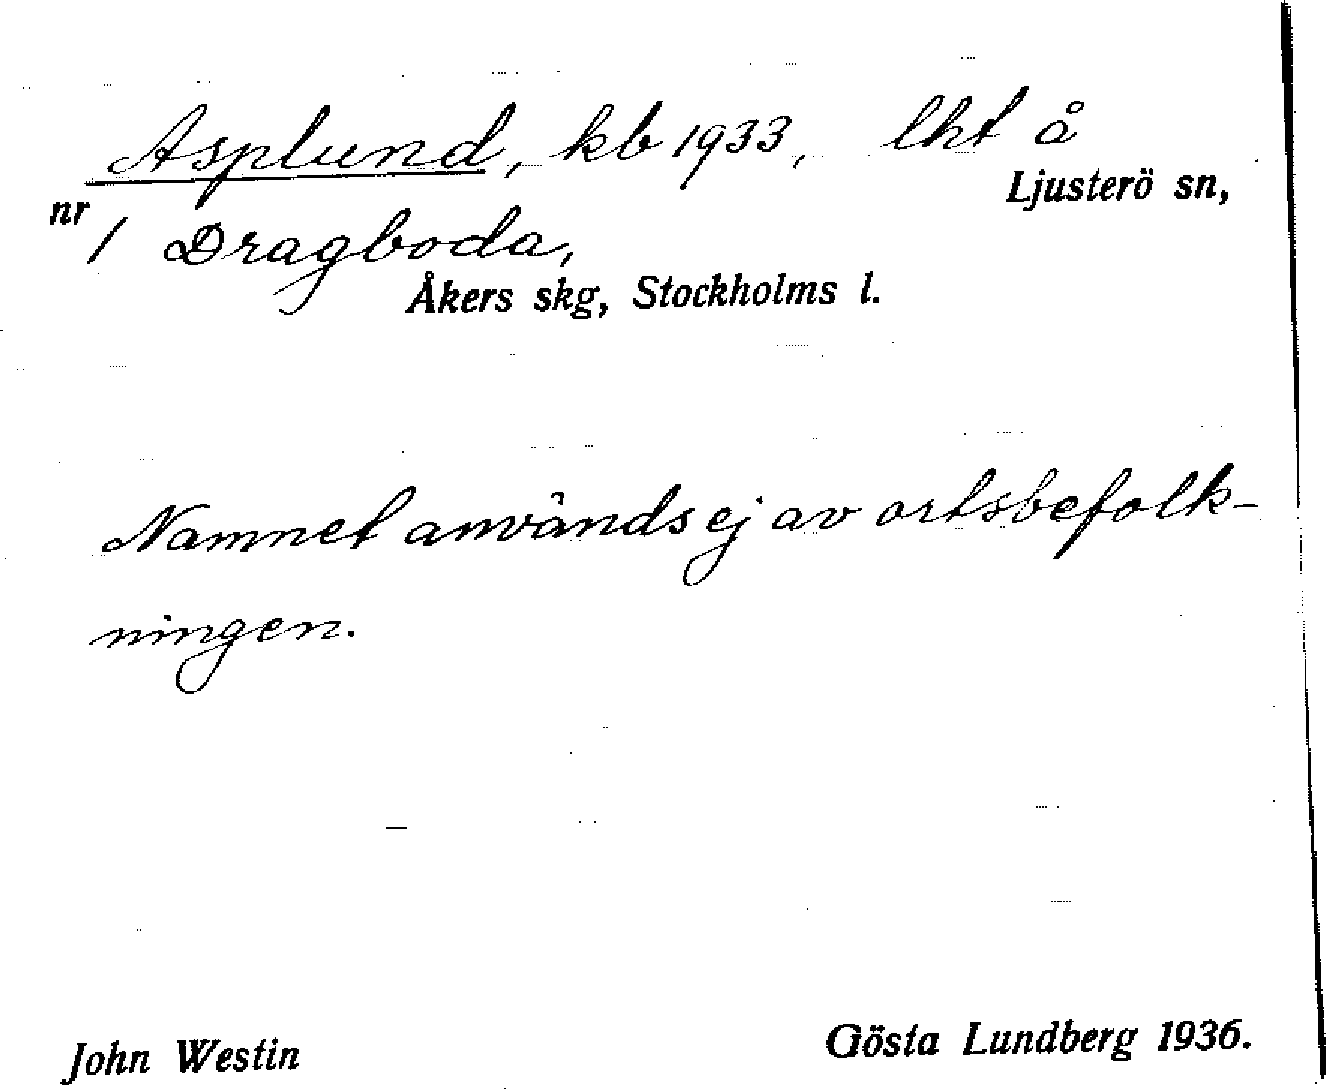 Asplund, kb 1933, lht å
Ljusterö sn,
nr 1 Dragboda,
Åkers skg, Stockholms l.
Namnet används ej av ortsbefolk-
ningen.
John Westin Gösta Lundberg 1936.